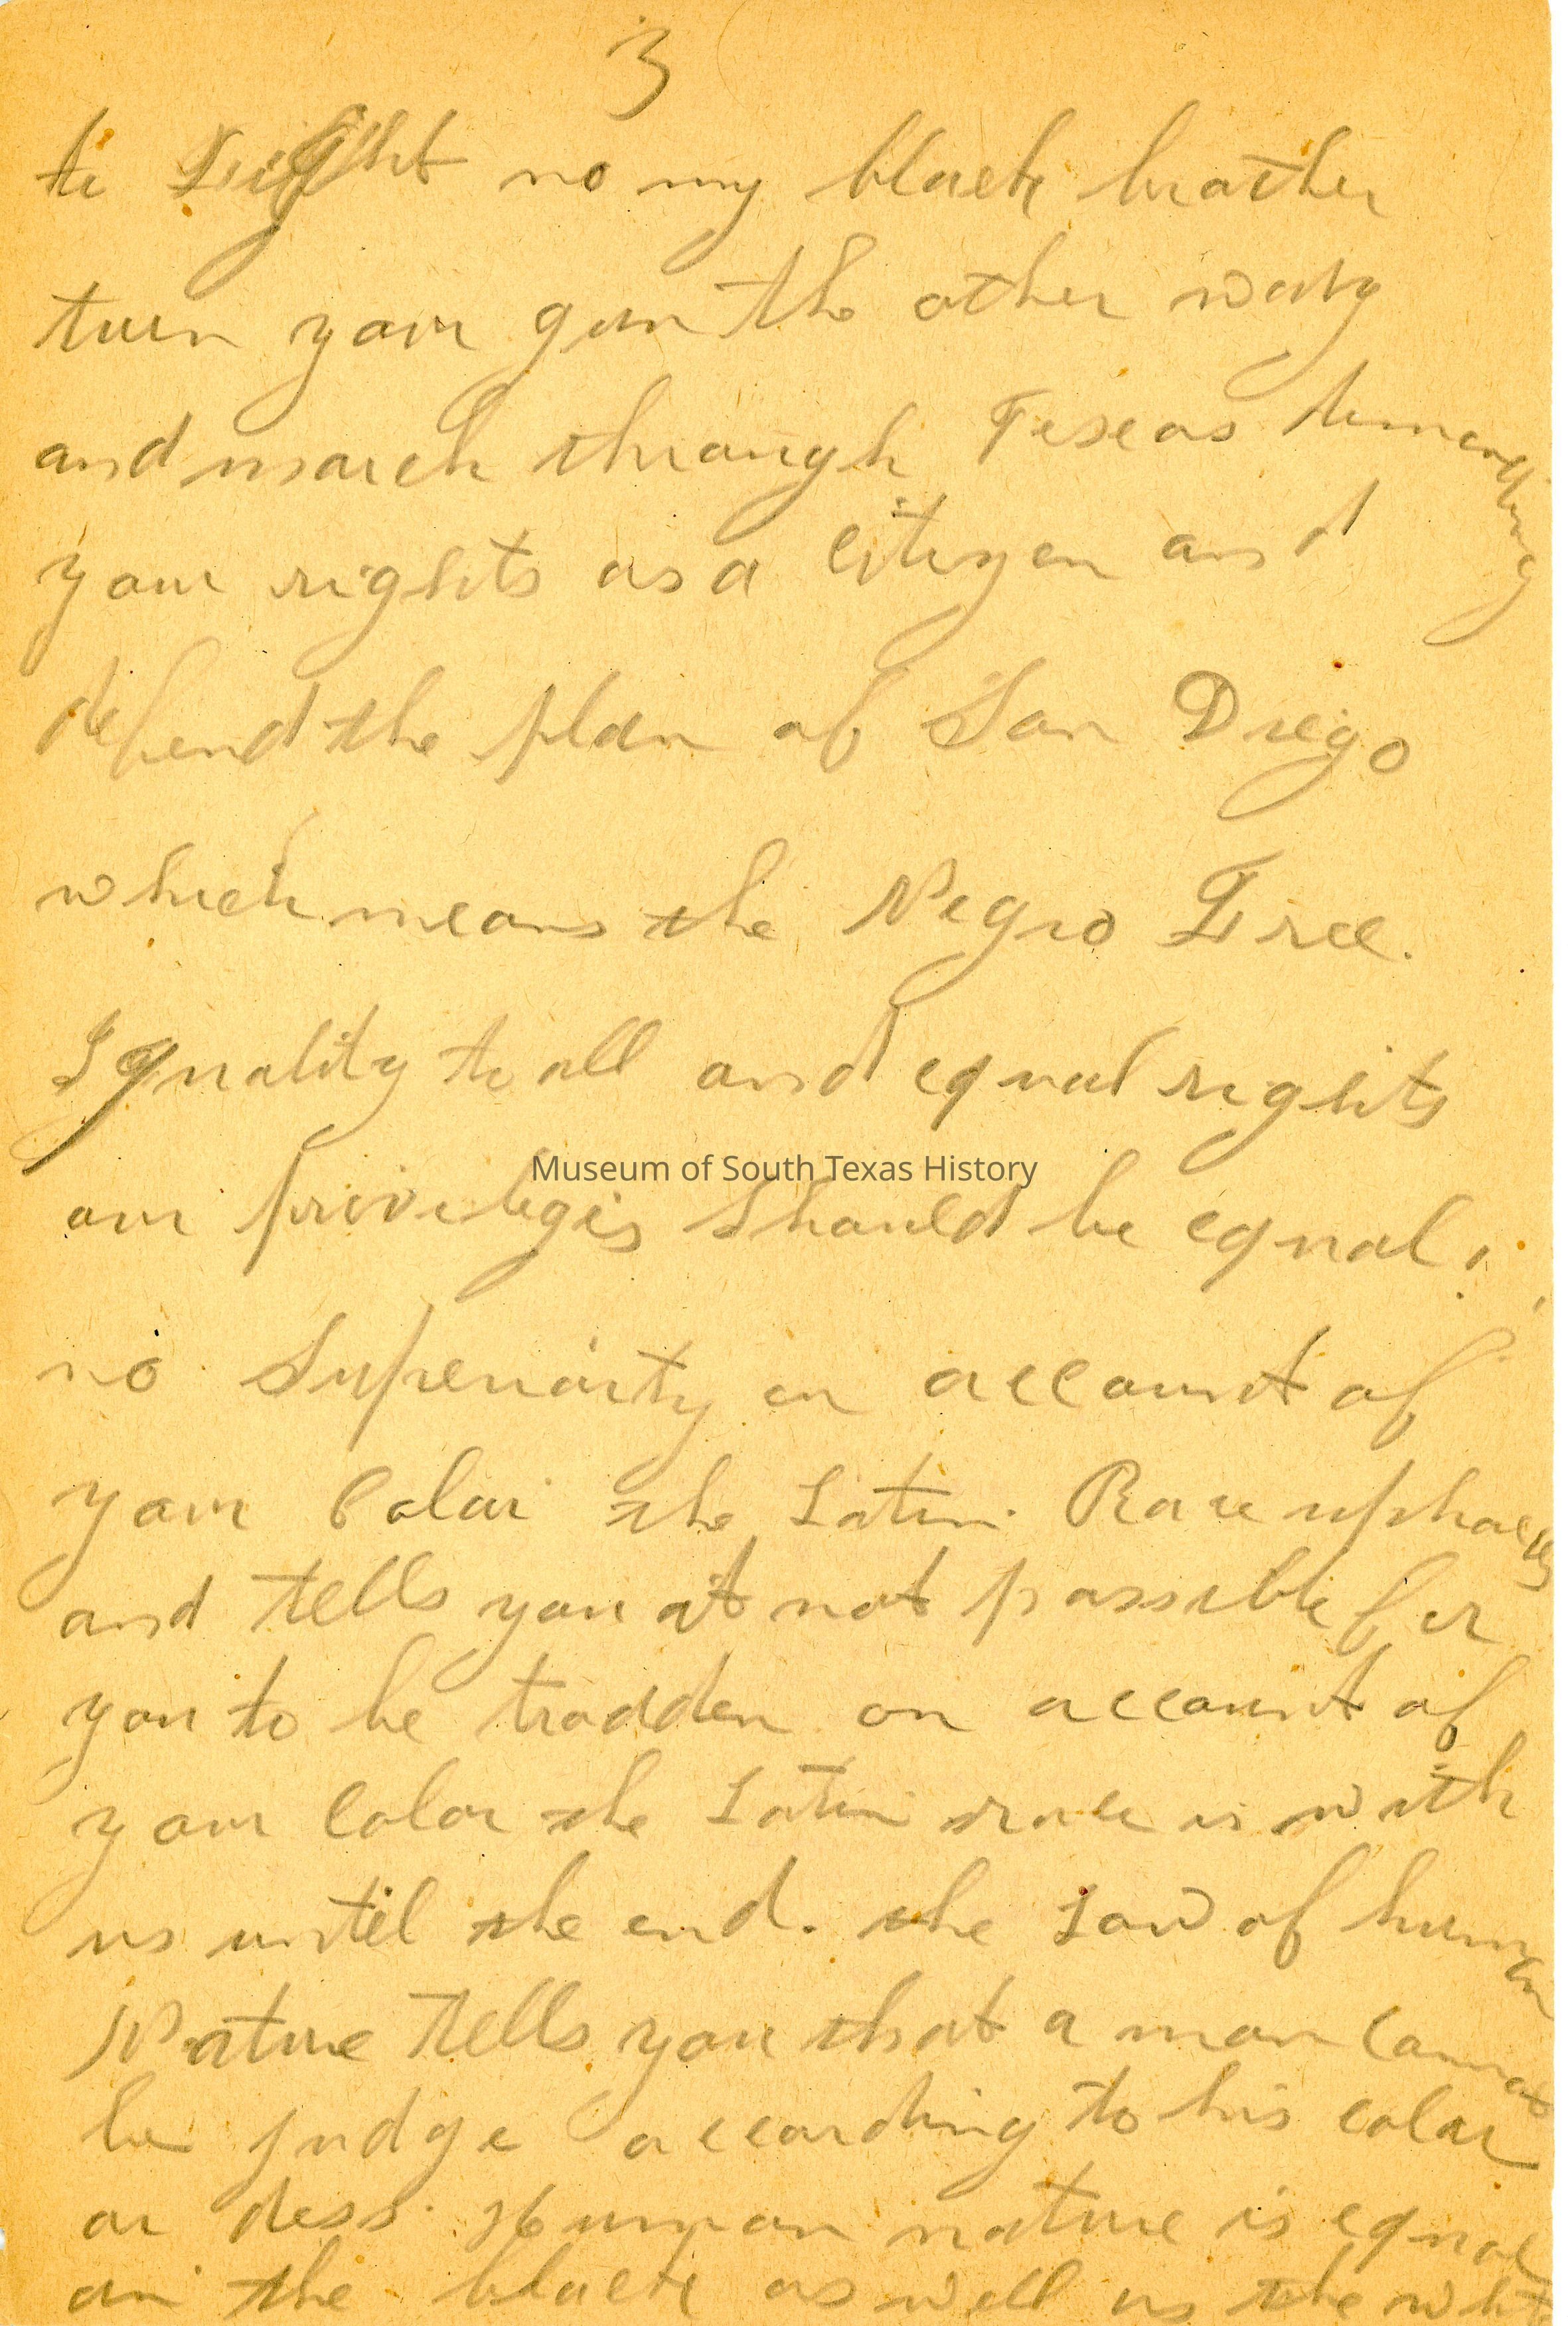 3
to Fight no my black brother
turn your gun the other way
and march through Texas demanding
your rights as a citizen and
defend the plan of San Diego
which means the Negro Free.
Iquality to all and equal rights
Museum of South Texas History
our privileges should be equal.
no Superiority on account of
your Color the Latin Race
and tells you it not possible for
you to be trodden on account of
your Color the Latin race is with
us until the end. the Law of human
Nature tells you that a man cannot
be judge according to his color
or dess. Human nature is equal
on the black as well as the white